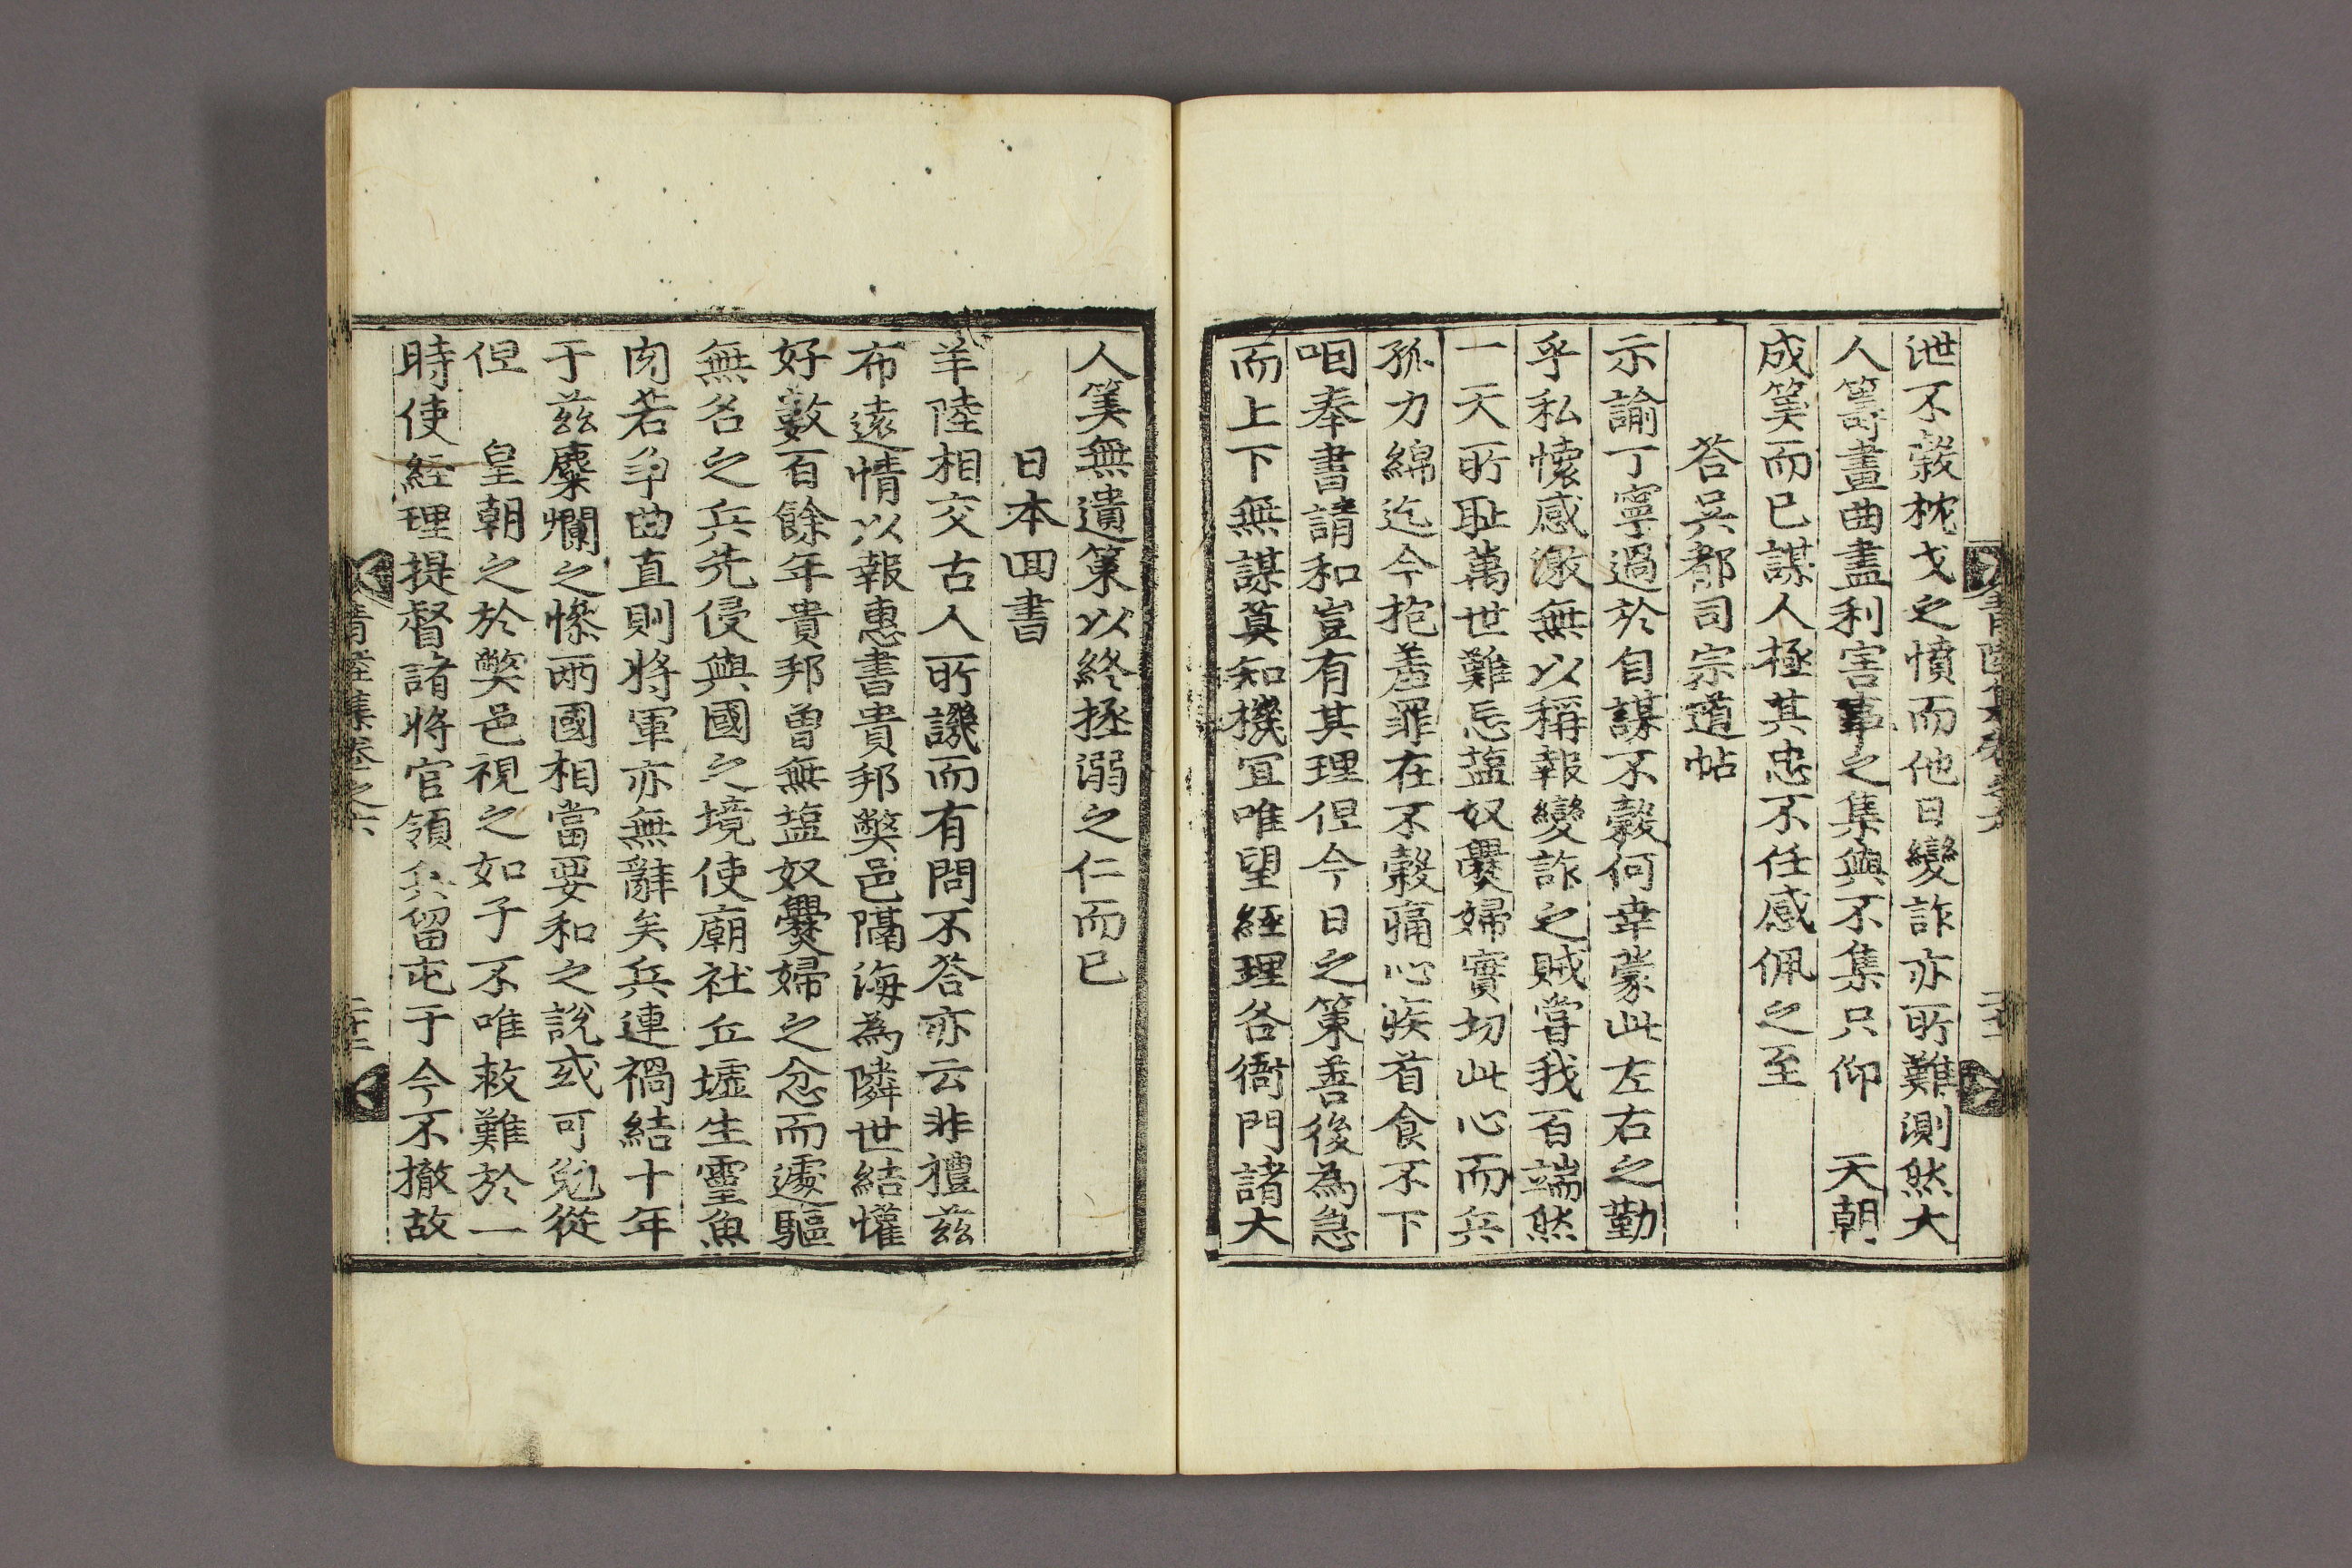 泄不穀枕戈之憤而他日變詐亦所難測然大
人籌畫曲盡利害事之集與不集只仰 天朝
成筭而已謀人極其忠不任感佩之至
答吳都司宗道帖
示諭丁寧過於自謀不穀何幸蒙此左右之勤
乎私懷感激無以稱報變詐之賊嘗我百端然
一天所耻萬世難忘薀奴爨婦實切此心而兵
孤力綿迄今抱羞罪在不穀痛心疾首食不下
咽奉書請和豈有其理但今日之策善後為急
而上下無謀莫知機宜唯望經理各衙門諸大
人筭無遺策以終拯溺之仁而已
日本回書
羊陸相交古人所譏而有問不答亦云非禮茲
布遠情以報惠書貴邦獘邑隔海為隣世結懽
好數百餘年貴邦曾無薀奴爨婦之忿而遽驅
無名之兵先侵與國之境使廟社丘墟生靈魚
肉若爭曲直則將軍亦無辭矣兵連禍結十年
于茲糜爛之慘兩國相當要和之說或可勉從
但 皇朝之於獘邑視之如子不唯救難於一
時使經理提督諸將官領兵留屯于今不撤故
青陸集卷之六